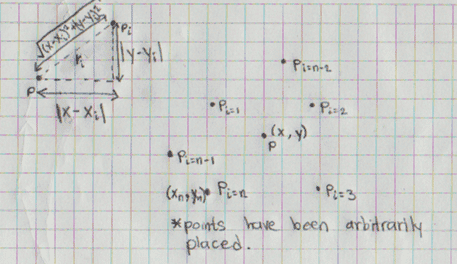 √(x-xᵢ)²+(y-yᵢ)²
Pᵢ
rᵢ
|y-yᵢ|
P
|x-xᵢ|
Pᵢ₌ₙ₋₂
Pᵢ₌₁
Pᵢ₌₂
(x, y)
P
Pᵢ₌ₙ₋₁
(xₙ, yₙ) Pᵢ₌ₙ
Pᵢ₌₃
*points have been arbitrarily
placed.